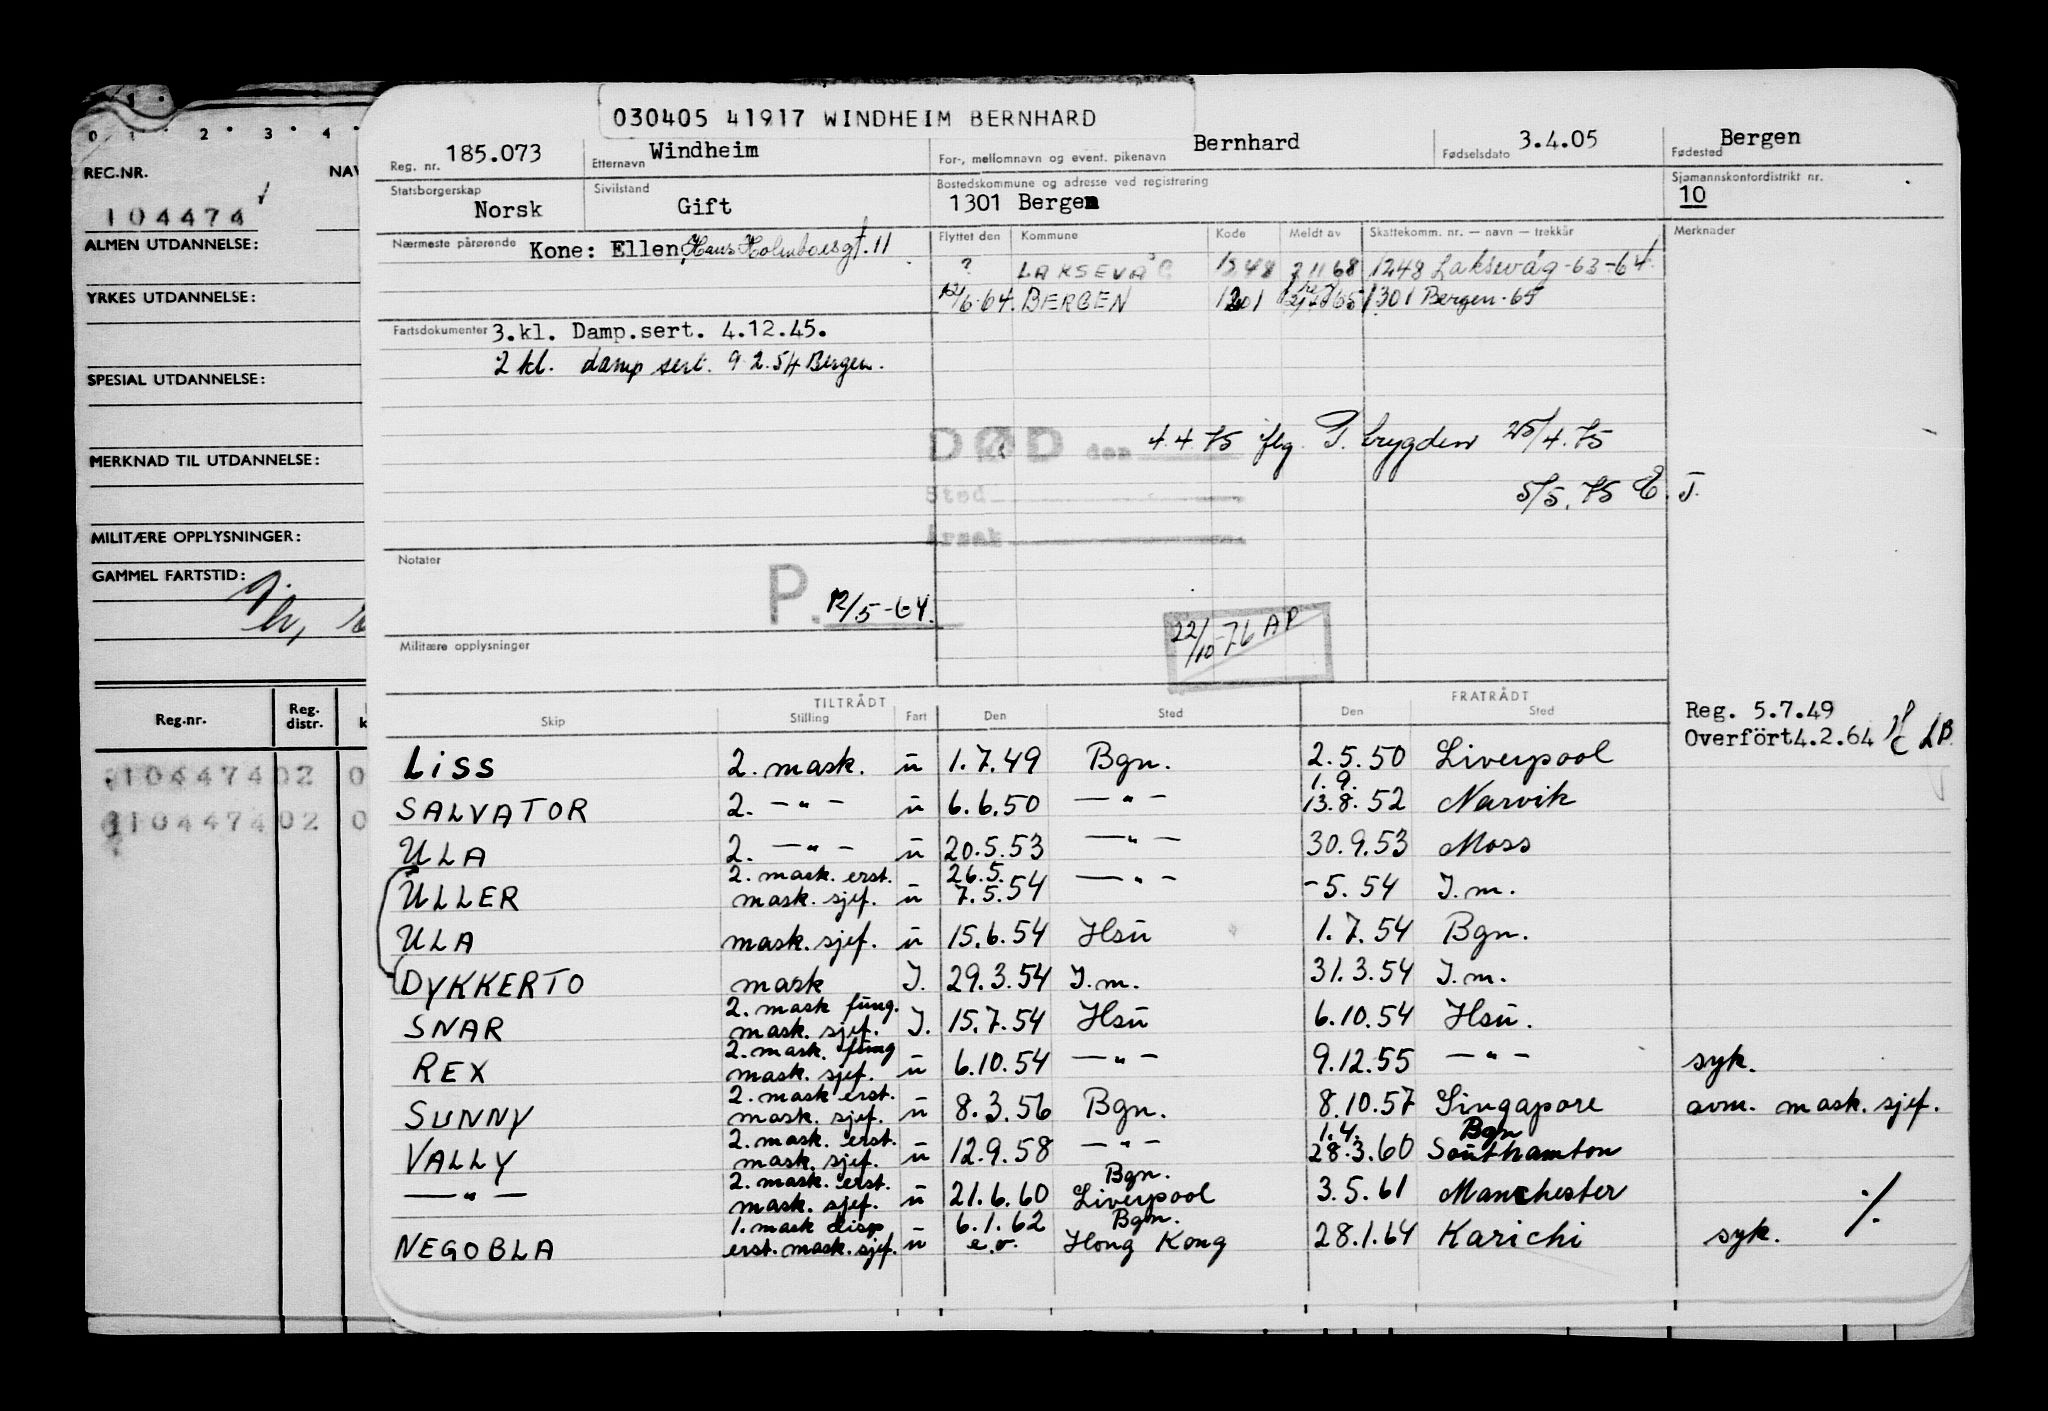 0 1 2 3 4
REC.NR. NAV
104474
ALMEN UTDANNELSE:
YRKES UTDANNELSE:
SPESIAL UTDANNELSE:
MERKNAD TIL UTDANNELSE:
MILITÆRE OPPLYSNINGER:
GAMMEL FARTSTID:
Reg.nr. Reg. distr. k
10447402 0
10447402 0
030405 41917 WINDHEIM BERNHARD
Reg. nr. 185.073 Etternavn Windheim For-, mellomnavn og event. pikenavn Bernhard Fødselsdato 3.4.05 Fødested Bergen
Statsborgerskap Norsk Sivilstand Gift Bostedskommune og adresse ved registrering 1301 Bergen Sjømannskontordistrikt nr. 10
Nærmeste pårørende Kone: Ellen, Hans Holmboesgt. 11
Flyttet den Kommune Kode Meldt av Skattekomm. nr. — navn — trekkår Merknader
? LAKSEVÅG 1248 2 11 68 1248 Laksevåg -63-64
12/6-64. BERGEN 1301 65 1301 Bergen-65
Fartsdokumenter 3.kl. Damp.sert. 4.12.45.
2 kl. damp sert. 9.2.54 Bergen.
DØD den 4.4.75 flg. T. trygden 25/4.75
Sted 5/5.75 E. J.
Årsak
Notater
P. 12/5-64.
22/10-76 AP
Militære opplysninger
TILTRÅDT FRATRÅDT
Skip Stilling Fart Den Sted Den Sted
Reg. 5.7.49
Overfört 4.2.64 LB
LISS 2. mask. u 1.7.49 Bgn. 2.5.50 Liverpool
1.9.
SALVATOR 2. —"— u 6.6.50 —"— 13.8.52 Narvik
ULA 2. —"— u 20.5.53 —"— 30.9.53 Moss
2. mask. erst. 26.5.
ULLER mask. sjef. u 7.5.54 —"— -5.54 I.m.
ULA mask. sjef. u 15.6.54 Hsu 1.7.54 Bgn.
DYKKERTO mask I. 29.3.54 I.m. 31.3.54 I.m.
2. mask fung.
SNAR mask. sjef. I. 15.7.54 Hsu 6.10.54 Hsu.
2. mask. fung
REX mask. sjef. u 6.10.54 —"— 9.12.55 —"— syk.
2. mask erst.
SUNNY mask. sjef. u 8.3.56 Bgn. 8.10.57 Singapore avm. mask. sjef.
2. mask. erst. 1.4. Bgn
VALLY mask. sjef. u 12.9.58 —"— 28.3.60 Southamton
2. mask. erst. Bgn.
—"— mask. sjef. u 21.6.60 Liverpool 3.5.61 Manchester ./.
1. mask disp 6.1.62 Bgn.
NEGOBLA erst. mask. sjef. u e.o. Hong Kong 28.1.64 Karichi syk.